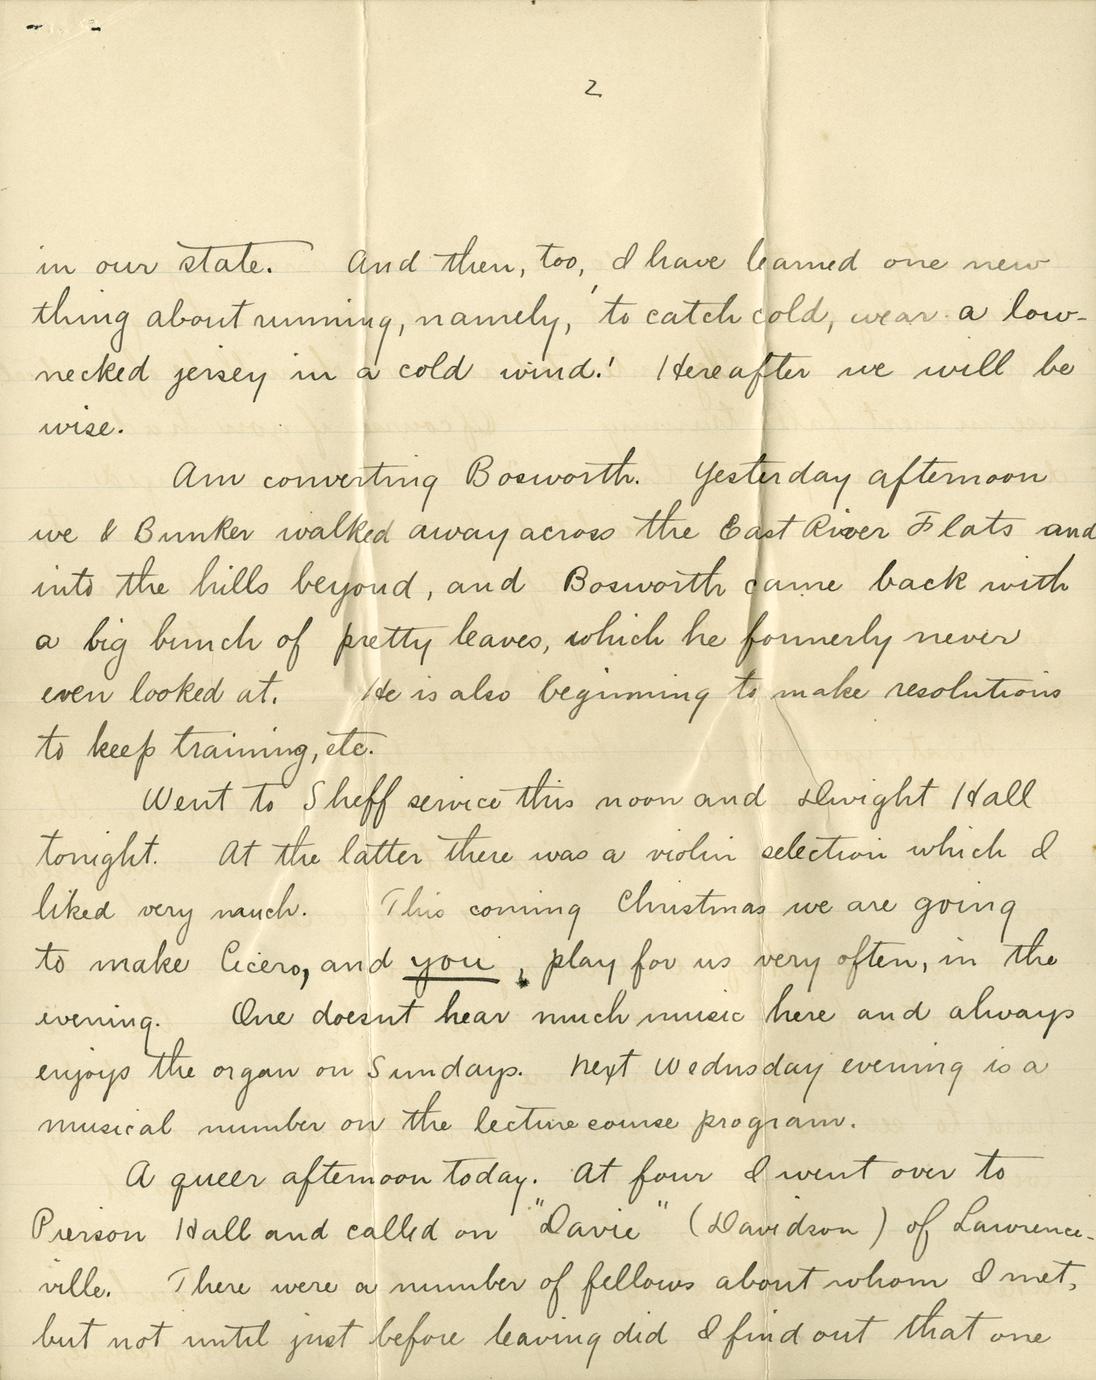 2
in our state. And then, too, I have learned one new
thing about running, namely, 'to catch cold, wear a low-
necked jersey in a cold wind.' Hereafter we will be
wise.
Am converting Bosworth. Yesterday afternoon
we & Bunker walked away across the East River Flats and
into the hills beyond, and Bosworth came back with
a big bunch of pretty leaves, which he formerly never
even looked at. He is also beginning to make resolutions
to keep training, etc.
Went to Sheff service this noon and Dwight Hall
tonight. At the latter there was a violin selection which I
liked very much. This coming Christmas we are going
to make Cicero, and you, play for us very often, in the
evening. One doesnt hear much music here and always
enjoys the organ on Sundays. Next Wednesday evening is a
musical number on the lecture course program.
A queer afternoon today. At four I went over to
Pierson Hall and called on "Davie" (Davidson) of Lawrence-
ville. There were a number of fellows about whom I met,
but not until just before leaving did I find out that one